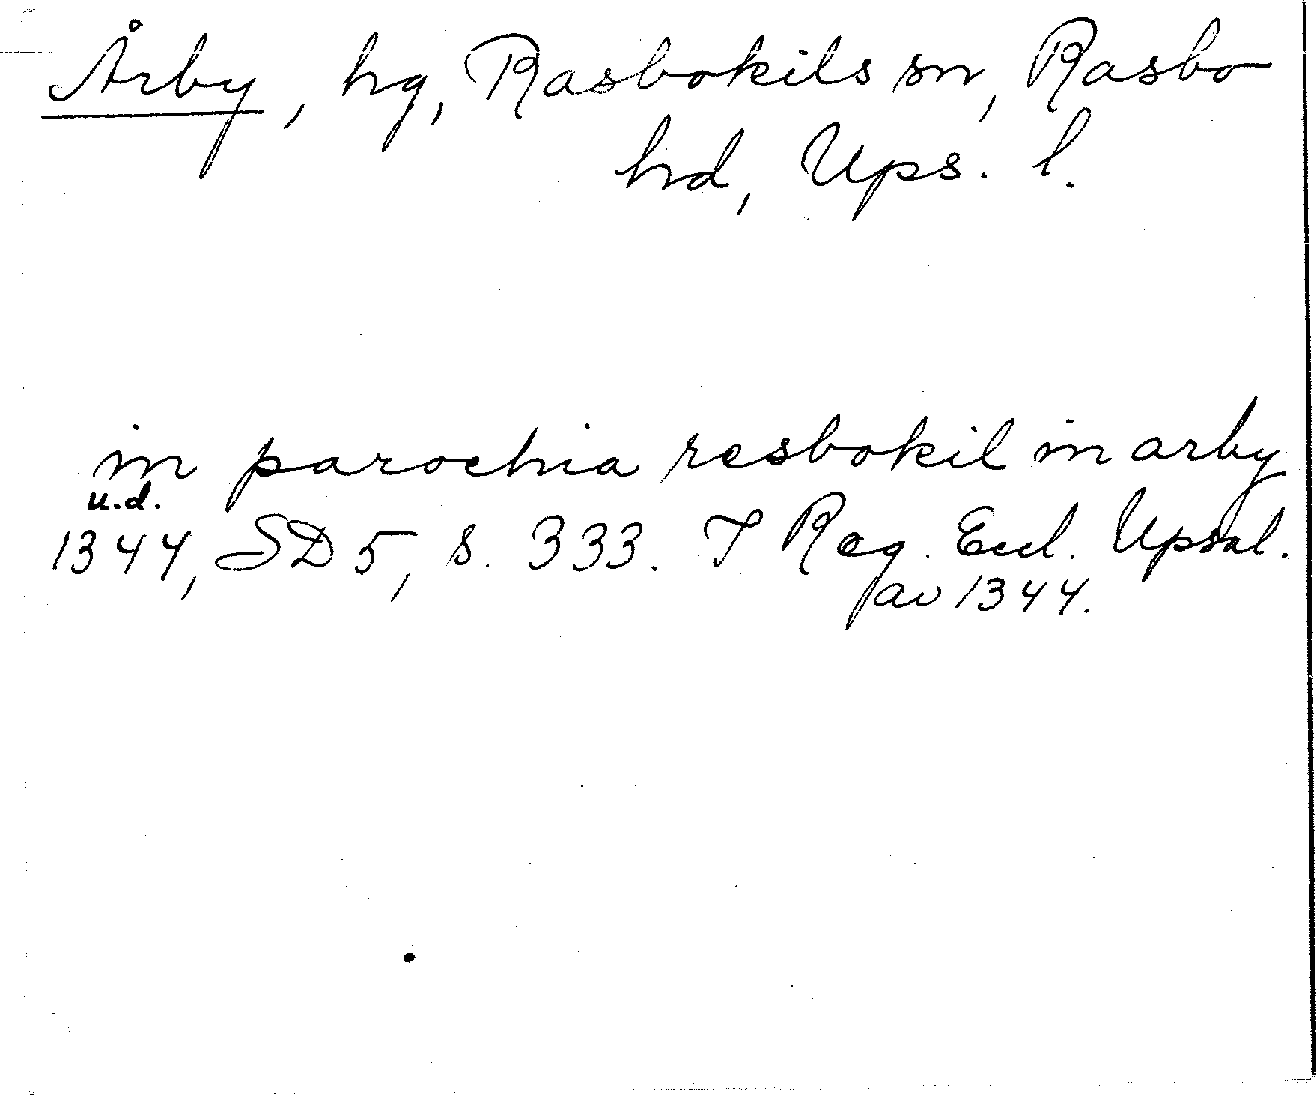 Årby, hg, Rasbokils sn, Rasbo
hd, Ups. l.
in parochia resbokil in arby
u.d.
1344, SD 5, s. 333. I Reg. Eccl. Upsal.
av 1344.